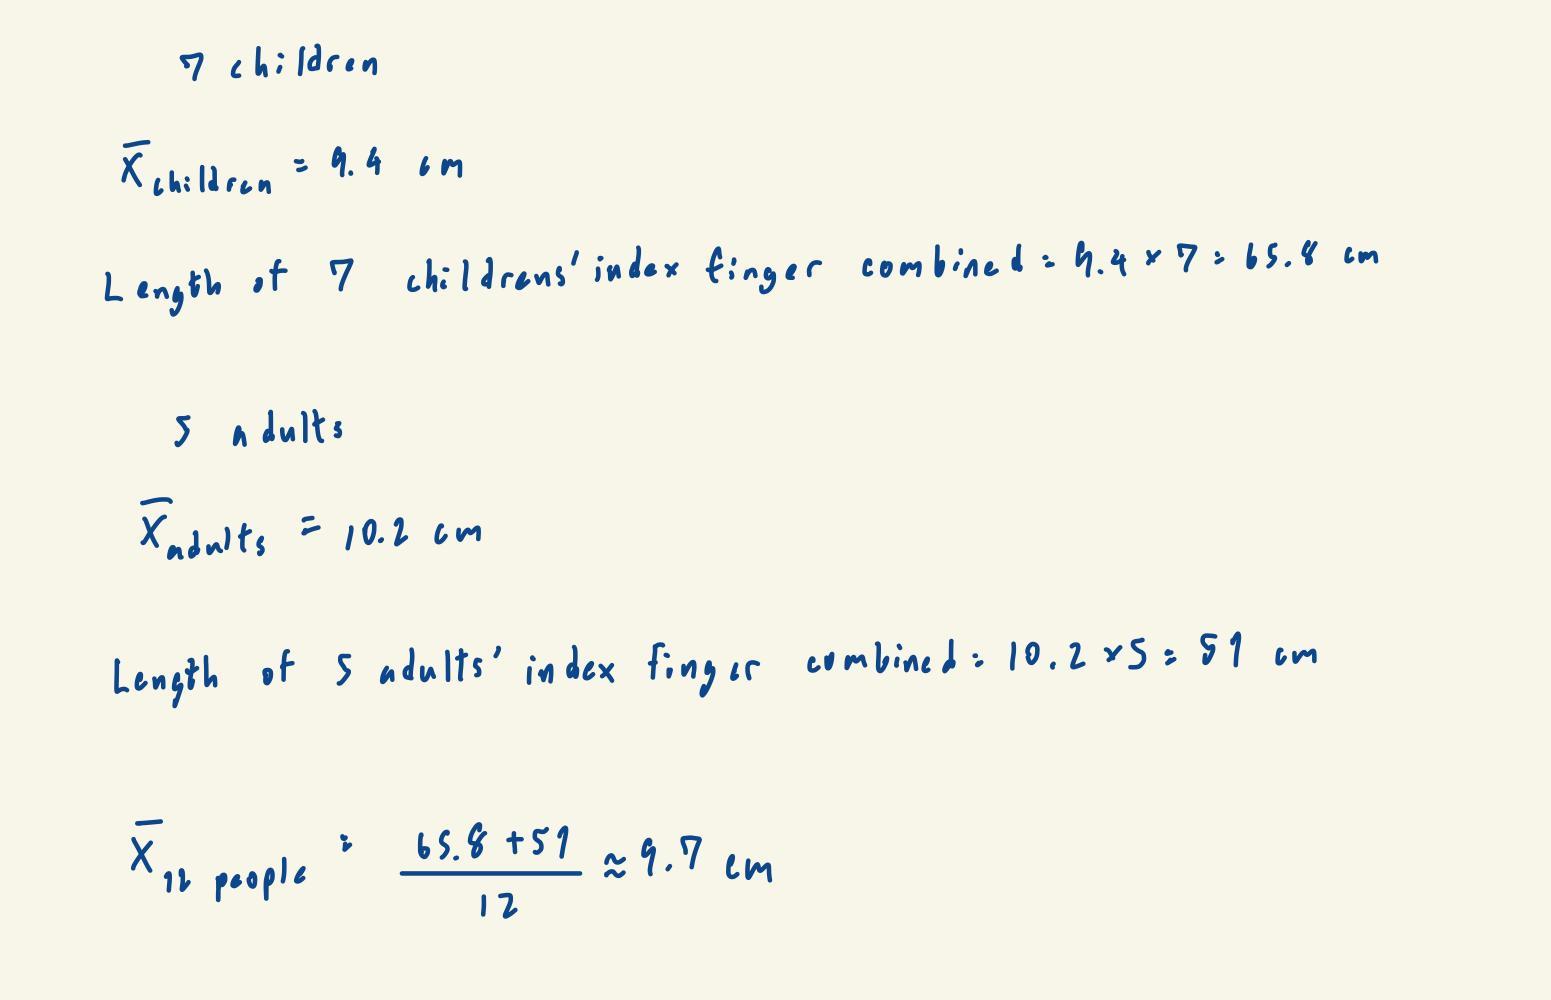 7 children
X̄ children = 9.4 cm
Length of 7 childrens' index finger combined = 9.4 × 7 = 65.8 cm
5 adults
X̄ adults = 10.2 cm
Length of 5 adults' index finger combined = 10.2 × 5 = 51 cm
X̄ 12 people = 65.8 + 51 / 12 ≈ 9.7 cm